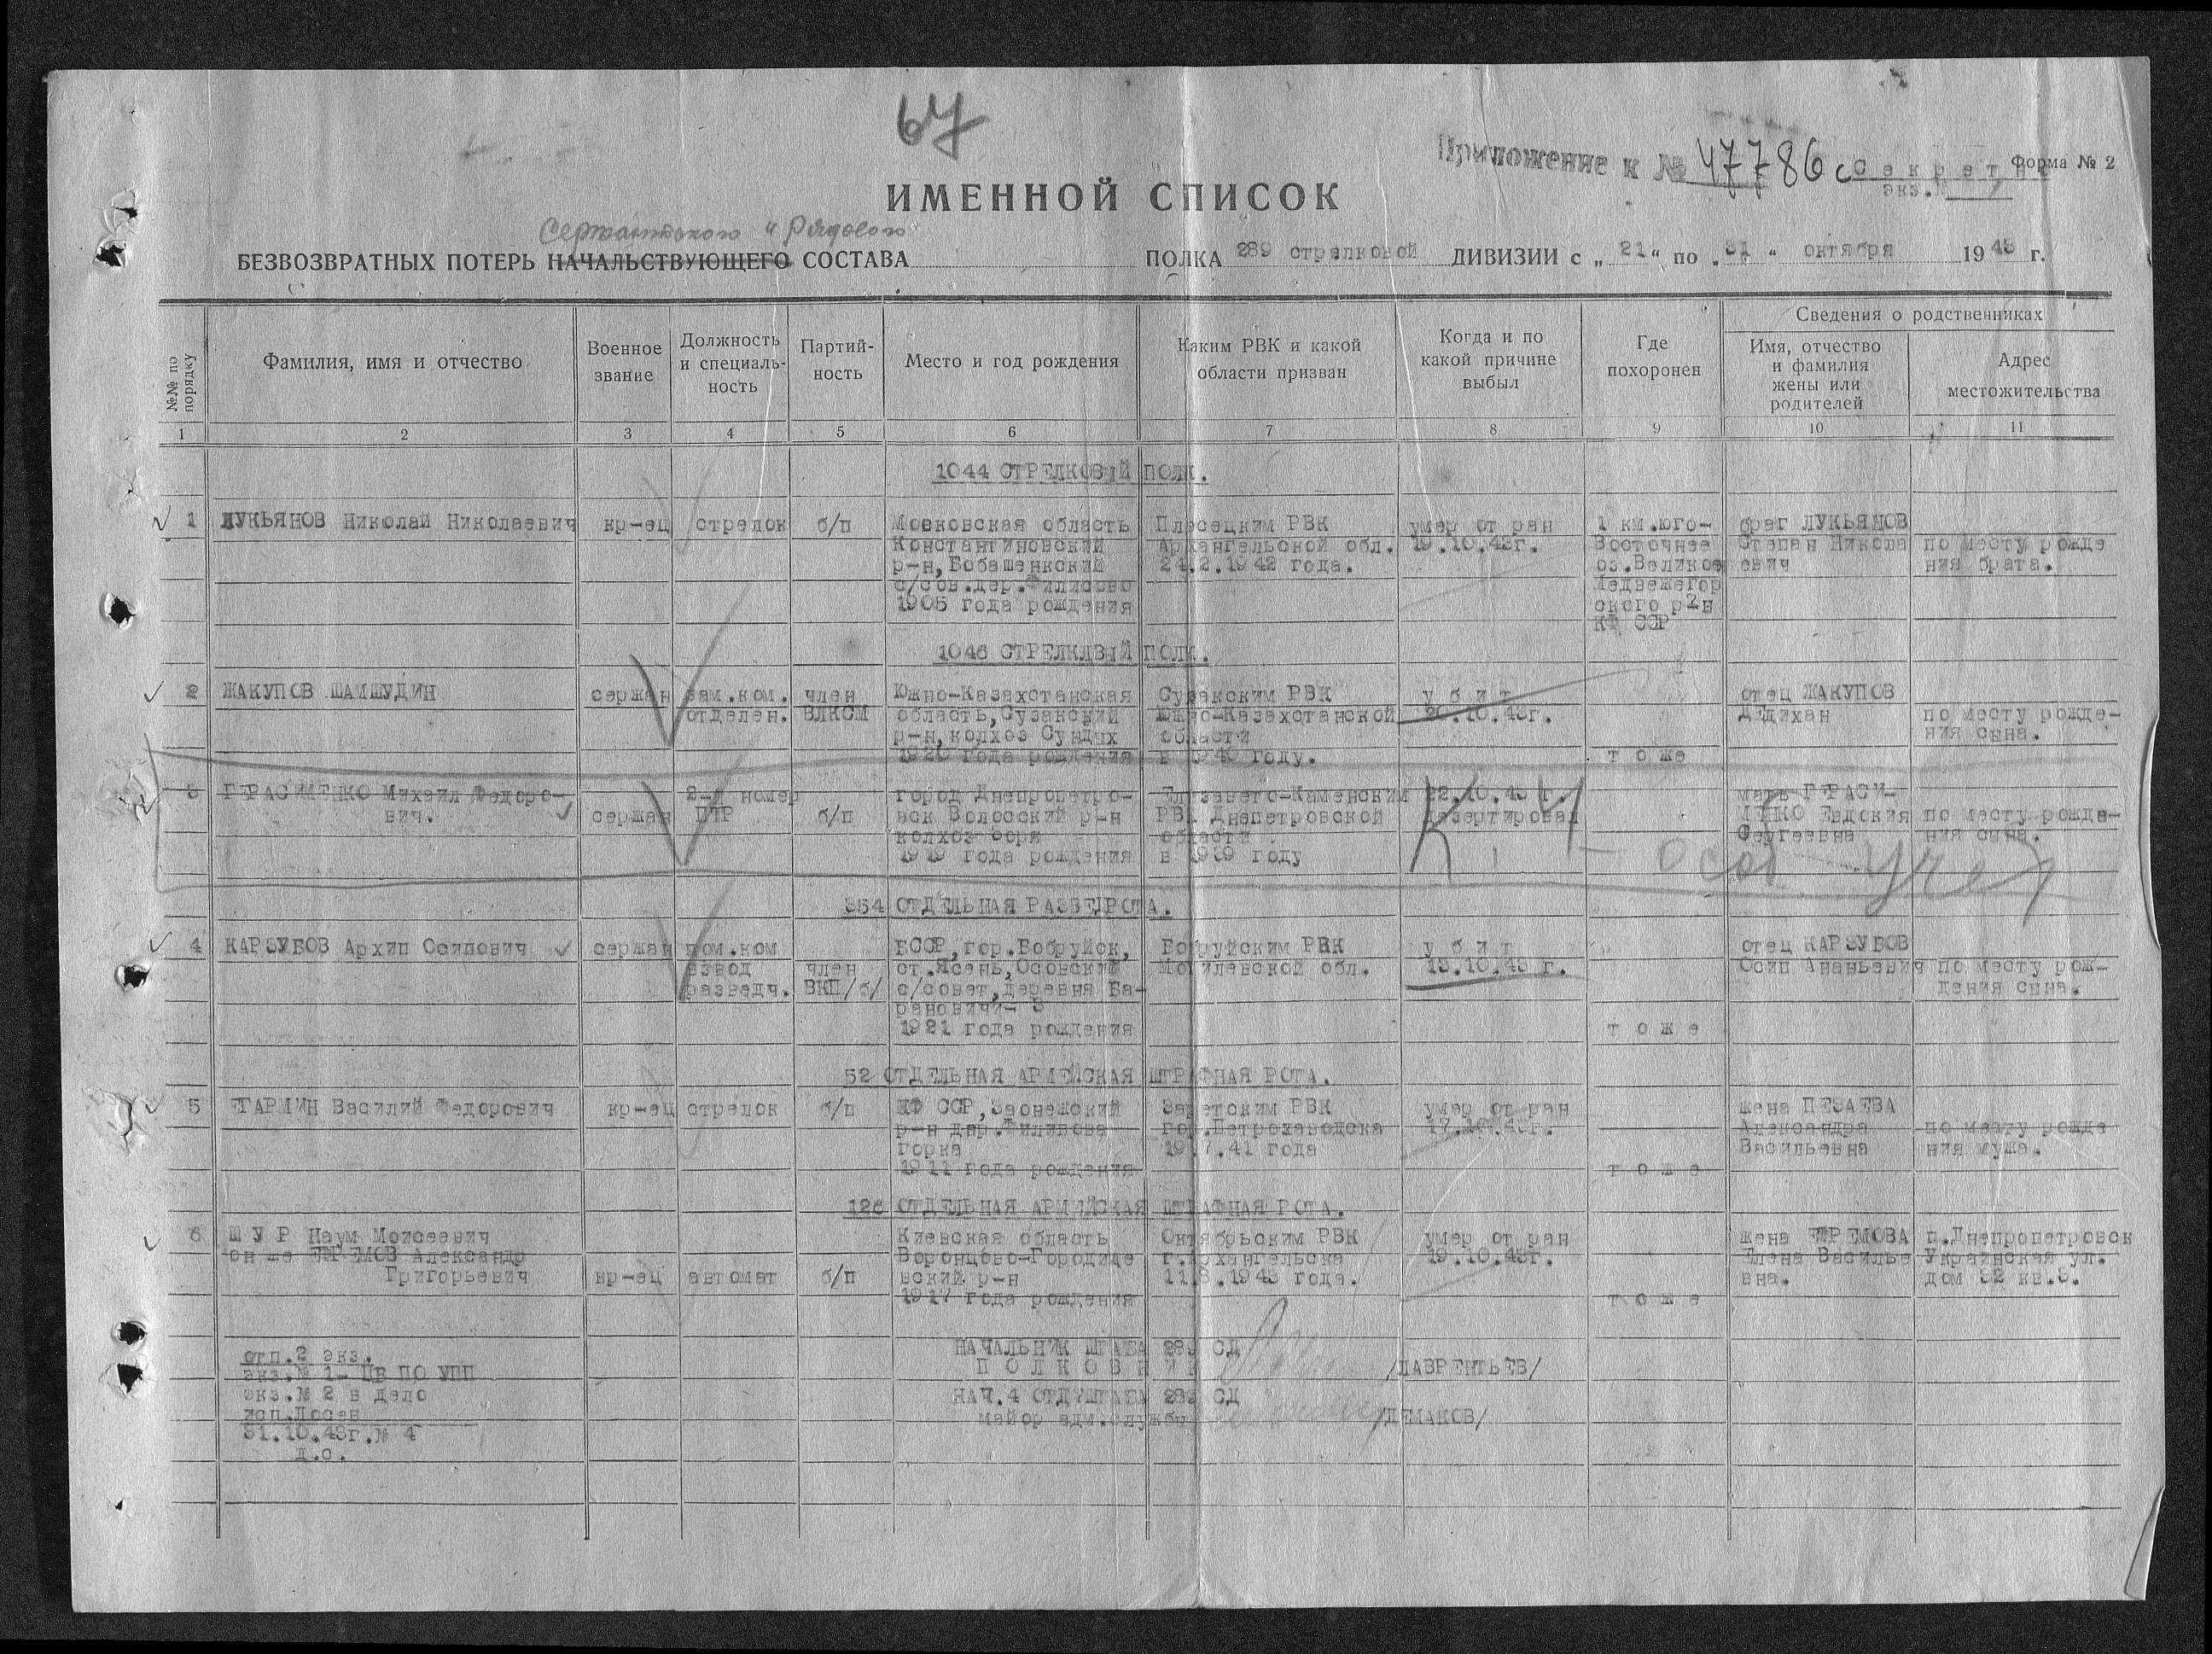 67
Приложение к № 47786с
Секретно
Форма № 2
экз.№
ИМЕННОЙ СПИСОК
Сержантского и Рядового
БЕЗВОЗВРАТНЫХ ПОТЕРЬ НАЧАЛЬСТВУЮЩЕГО СОСТАВА ПОЛКА 289 стрелковой ДИВИЗИИ с „ 21 “ по „ 31 “ октября 19 43 г.
№№ по порядку
Фамилия, имя и отчество
Военное звание
Должность и специаль- ность
Партий- ность
Место и год рождения
Каким РВК и какой области призван
Когда и по какой причине выбыл
Где похоронен
Сведения о родственниках
Имя, отчество и фамилия жены или родителей
Адрес местожительства
1 2 3 4 5 6 7 8 9 10 11
1044 СТРЕЛКОВЫЙ ПОЛК.
1 ЛУКЬЯНОВ Николай Николаевич кр-ец стрелок б/п Московская область Плесецким РВК умер от ран 1 км.юго- брат ЛУКЬЯНОВ
Константиновский Архангельской обл. 19.10.43г. Восточнее Степан Никола по месту рожде
р-н, Бобашенкский 24.2.1942 года. оз.Великое евич ния брата.
с/сов.дер.Филисово Медвежегор
1905 года рождения ского р-н
КФ ССР
1046 СТРЕЛКОВЫЙ ПОЛК.
2 ЖАКУПОВ ШАМШУДИН сержан зам.ком. член Южно-Казахстанская Сузакским РВК у б и т отец ЖАКУПОВ
отделен. ВЛКСМ область,Сузакский Южно-Казахстанской 20.10.43г. ДЕДИХАН по месту рожде-
р-н,колхоз Сундых области ния сына.
1920 года рождения в 1940 году. т о ж е
3 ГЕРАСИМЕНКО Михаил Федоро- 2-й номер город Днепропетро- Елизавето-Каменским 22.10.43 г. мать ГЕРАСИ-
вич. сержан ПТР б/п вск Волосский р-н РВК Днепетровской дезертировал МЕНКО Евдокия по месту рожде-
колхоз Зоря области Сергеевна ния сына.
1919 года рождения в 1939 году
К 4 – особ учет
354 ОТДЕЛЬНАЯ РАЗВЕДРОТА.
4 КАРЗУБОВ Архип Осипович сержан пом.ком БССР,гор.Бобруйск, Бобруйским РВК у б и т отец КАРЗУБОВ
взвод член ст.Ясень,Осовский Могилевской обл. 19.10.43 г. Осип Ананьевич по месту рож-
разведч. ВКП/б/ с/совет,деревня Ба- дения сына.
рановичи- 3
1921 года рождения т о ж е
52 ОТДЕЛЬНАЯ АРМЕЙСКАЯ ШТРАФНАЯ РОТА.
5 ЕГАРМИН Василий Федорович кр-ец стрелок б/п КФ ССР,Заонежский Зарецким РВК умер от ран жена ПЕЗАЕВА
р-н дер.Филипова гор.Петрозаводска 17.10.43г. Александра по месту рожде
горка 19.7.41 года Васильевна ния мужа.
1911 года рождения т о ж е
126 ОТДЕЛЬНАЯ АРМЕЙСКАЯ ШТРАФНАЯ РОТА.
6 Ш У Р Наум Моисеевич Киевская область Октябрьским РВК умер от ран жена ЕФРЕМОВА г.Днепропетровск
он же ЕФРЕМОВ Александр Воронцово-Городище г.Архангельска 19.10.43г. Елена Василье Украинская ул.
Григорьевич кр-ец автомат б/п вский р-н 11.8.1943 года. вна. дом 32 кв.3.
1917 года рождения т о ж е
НАЧАЛЬНИК ШТАБА 289 СД
отп.2 экз. П О Л К О В Н И К /ЛАВРЕНТЬЕВ/
экз.№ 1- ЦБ ПО УПП
экз.№ 2 в дело НАЧ.4 ОТД.ШТАБА 289 СД
исп.Лосев майор адм.службы /ДЕМАКОВ/
31.10.43г.№ 4
д.с.